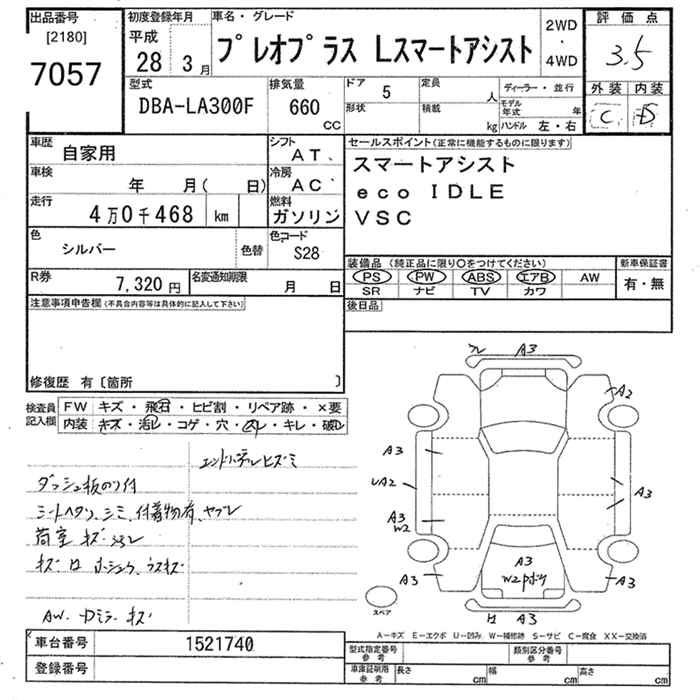 出品番号
[2180]
7057
初度登録年月
平成
28 3月
車名・グレード
プレオプラス Lスマートアシスト
2WD
・
4WD
評価点
3.5
外装 内装
C D
型式
DBA-LA300F
排気量
660
cc
ドア 5
形状
定員 人
積載 kg
ディーラー・並行
モデル年式 年
ハンドル 左・右
車歴
自家用
シフト
AT
車検
年 月( 日)
冷房
AC
走行
4万0千468 km
燃料
ガソリン
色
シルバー
色替
色コード
S28
R券
7,320円
名変通知期限
月 日
セールスポイント(正常に機能するものに限ります)
スマートアシスト
eco IDLE
VSC
装備品(純正品に限り○をつけてください)
PS PW ABS エアB AW
SR ナビ TV カワ
新車保証書
有・無
後日品
注意事項申告欄(不具合内容等は具体的に記入して下さい)
修復歴 有〔箇所 〕
検査員
記入欄
FW キズ・飛石・ヒビ割・リペア跡・×要
内装 キズ・汚レ・コゲ・穴・スレ・キレ・破レ
ダッシュ板のり付
シートヘタリ、シミ、付着物有、ヤブレ
荷室 キズ
AW. Dミラ キズ
A3
A2
A3
A2
A3
A3
W2
A3
A3
W2
A3
スペア
A－キズ E－エクボ U－凹み W－補修跡 S－サビ C－腐食 XX－交換済
車台番号 1521740
登録番号
型式指定番号
参考
類別区分番号
参考
車庫証明用
参考
長さ cm 幅 cm 高さ cm